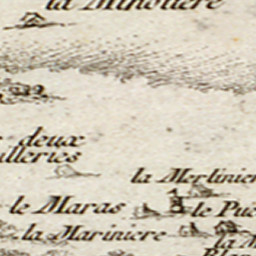 la Minotiere
deux
illeries
la Merlinier
le Maras
le Pue
la Mariniere
la M
Blan